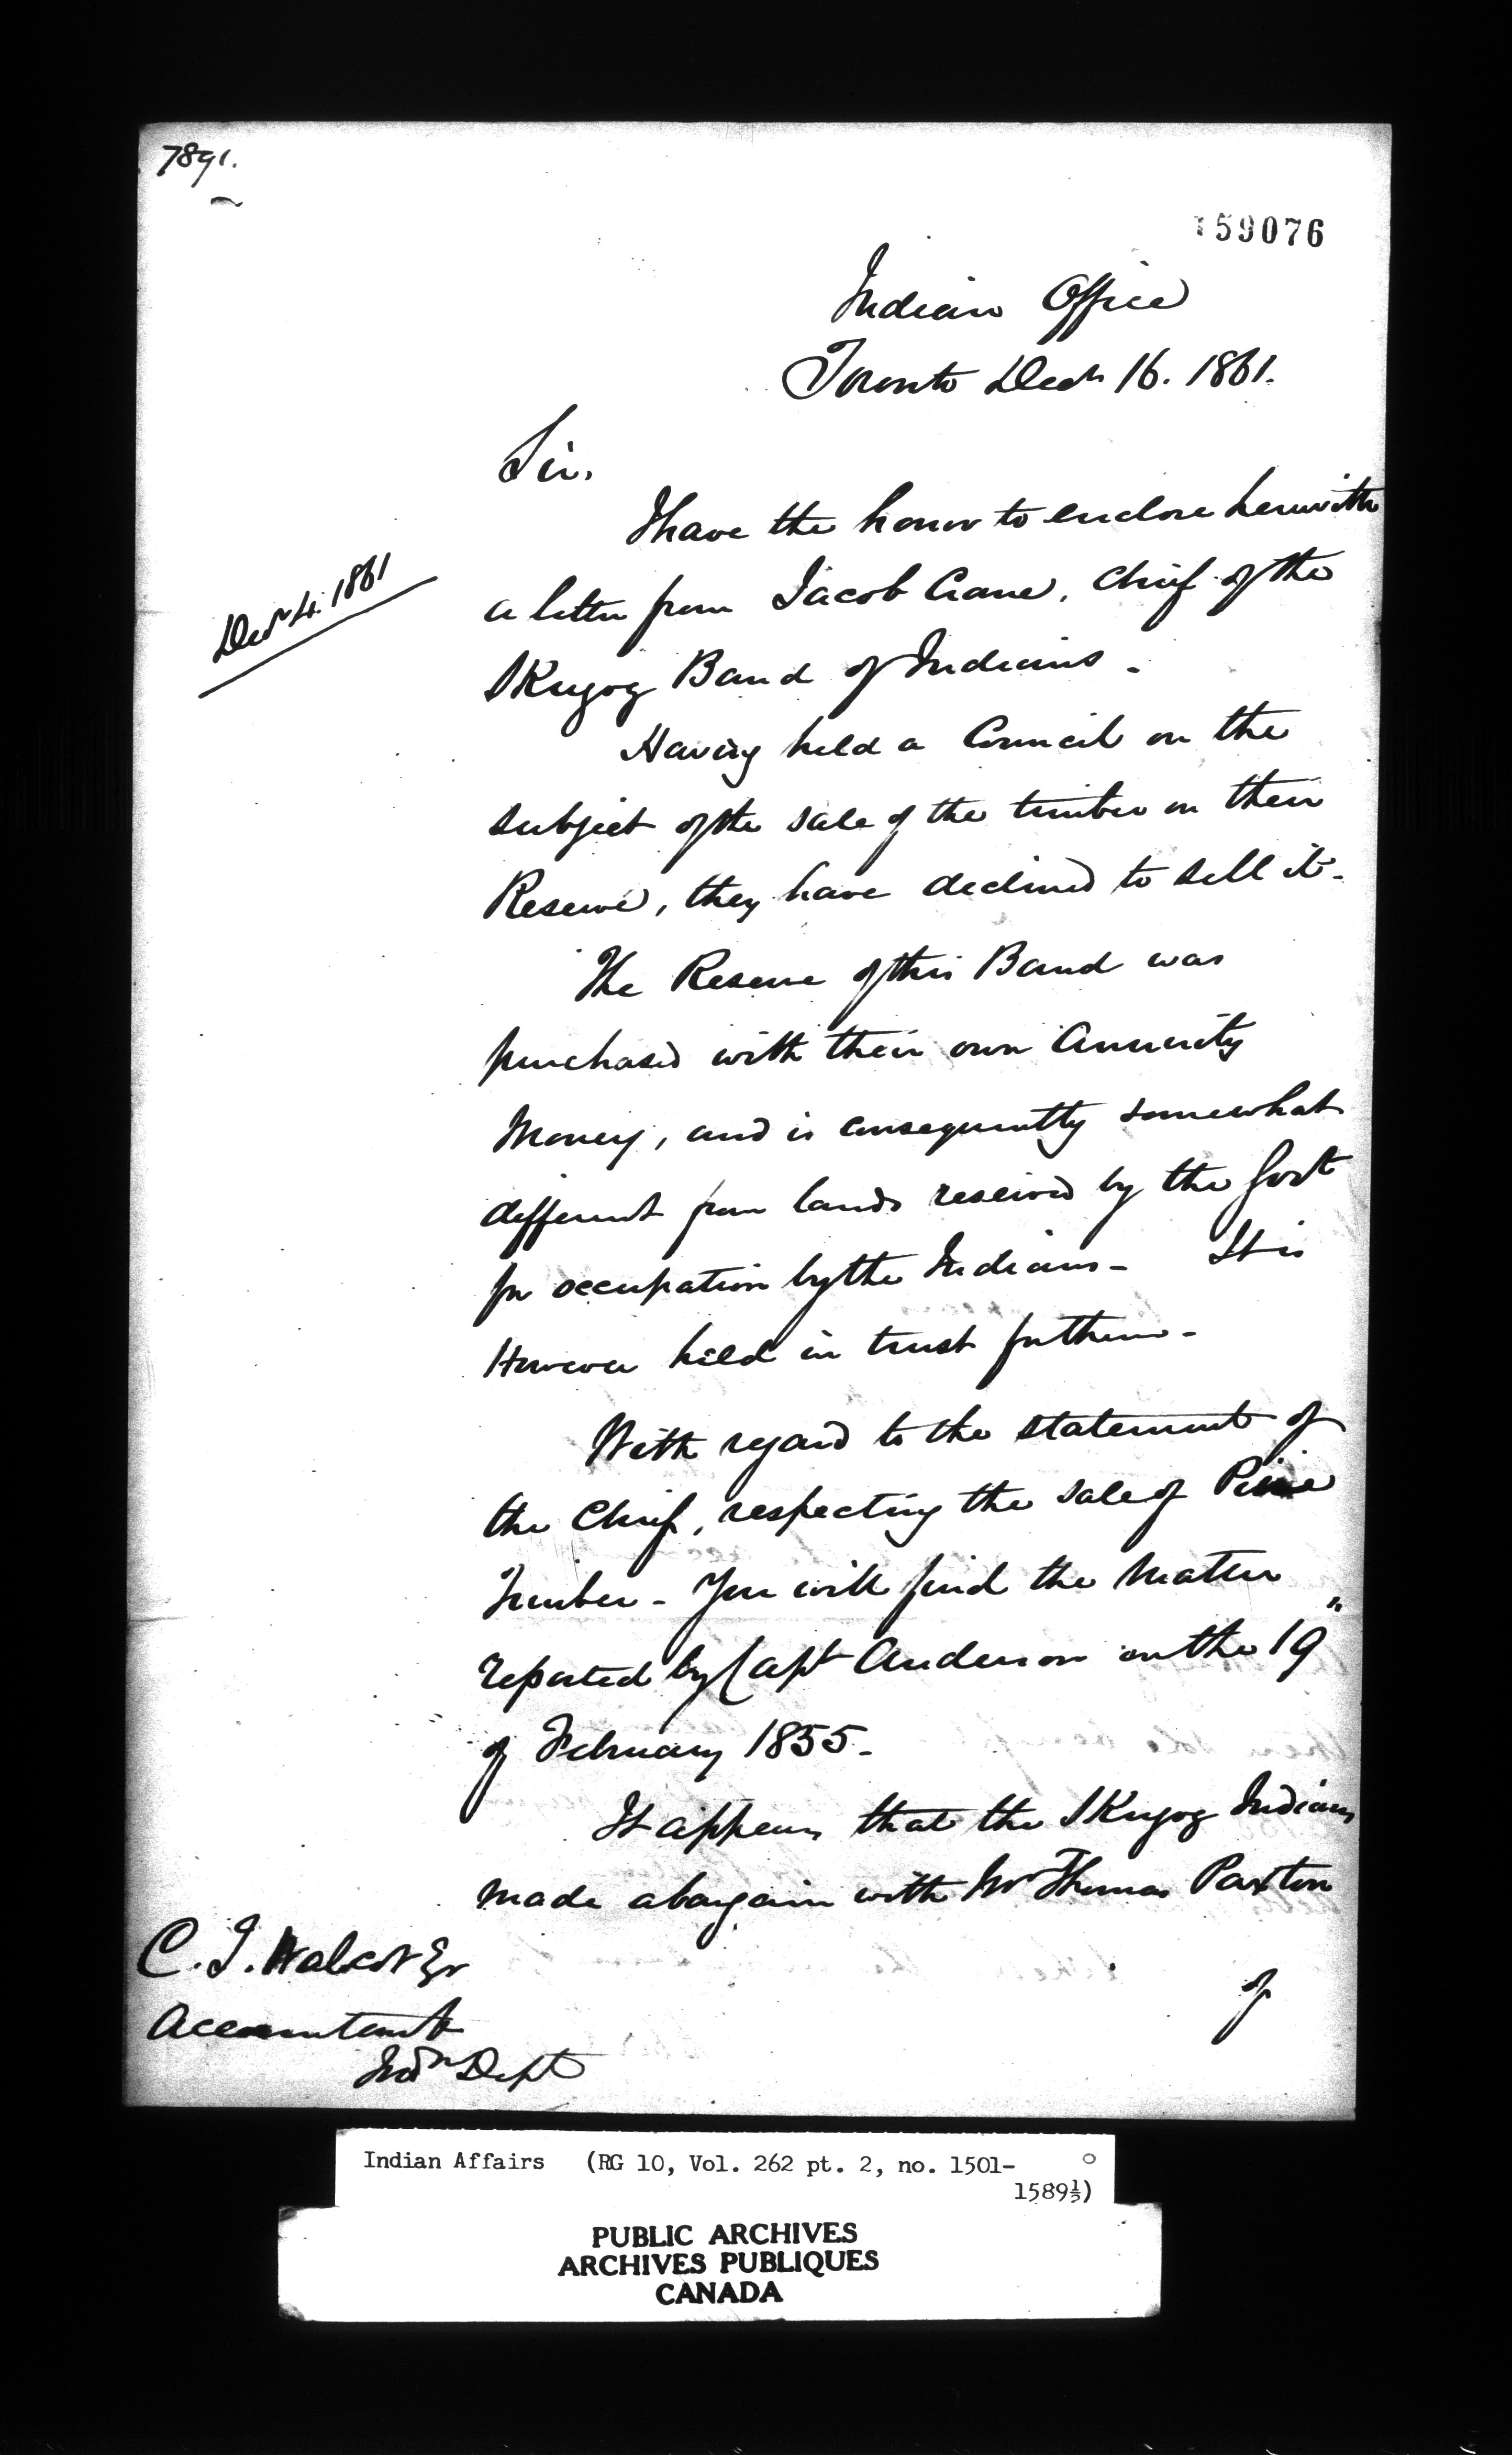 7891.
159076
Indian Office
Toronto Decr 16. 1861.
Sir,
I have the honor to enclose herewith
Decr 4. 1861
a letter from Jacob Crane, Chief of the
Skugog Band of Indians -
Having held a Council on the
subject of the sale of the timber on their
Reserve, they have declined to sell it -
The Reserve of this Band was
purchased with their own Annuity
Money, and is consequently somewhat
different from lands reserved by the Govt
for occupation by the Indians - It is
However held in trust for them -
With regard to the statement of
the Chief, respecting the sale of Pine
Timber - You will find the matter
reported by Capt Anderson on the 19"
of February 1855 -
It appears that the Skugog Indians
made a bargain with Mr Thomas Paxton
of
C. T. Walcot Esr
Accountant
Indn Dept
Indian Affairs (RG 10, Vol. 262 pt. 2, no. 1501-
1589½)
PUBLIC ARCHIVES
ARCHIVES PUBLIQUES
CANADA